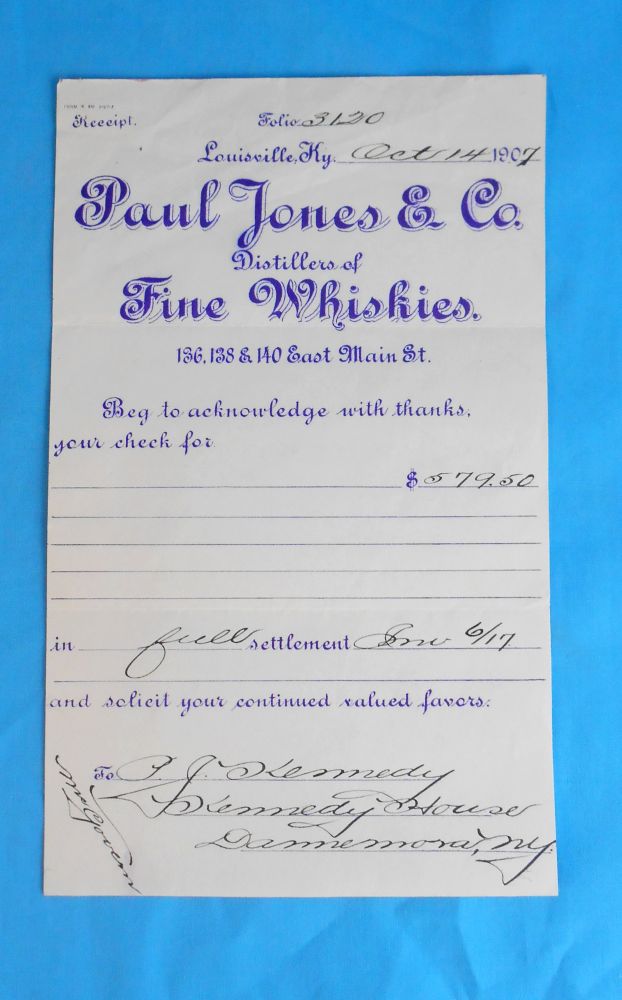 Receipt.
Folio 3120
Louisville, Ky. Oct 14 1907
Paul Jones & Co.
Distillers of
Fine Whiskies.
136, 138 & 140 East Main St.
Beg to acknowledge with thanks,
your check for
$ 579.50
in full settlement Inv 6/17
and solicit your continued valued favors:
To P. J. Kennedy
Kennedy House
Dannemora, N.Y.